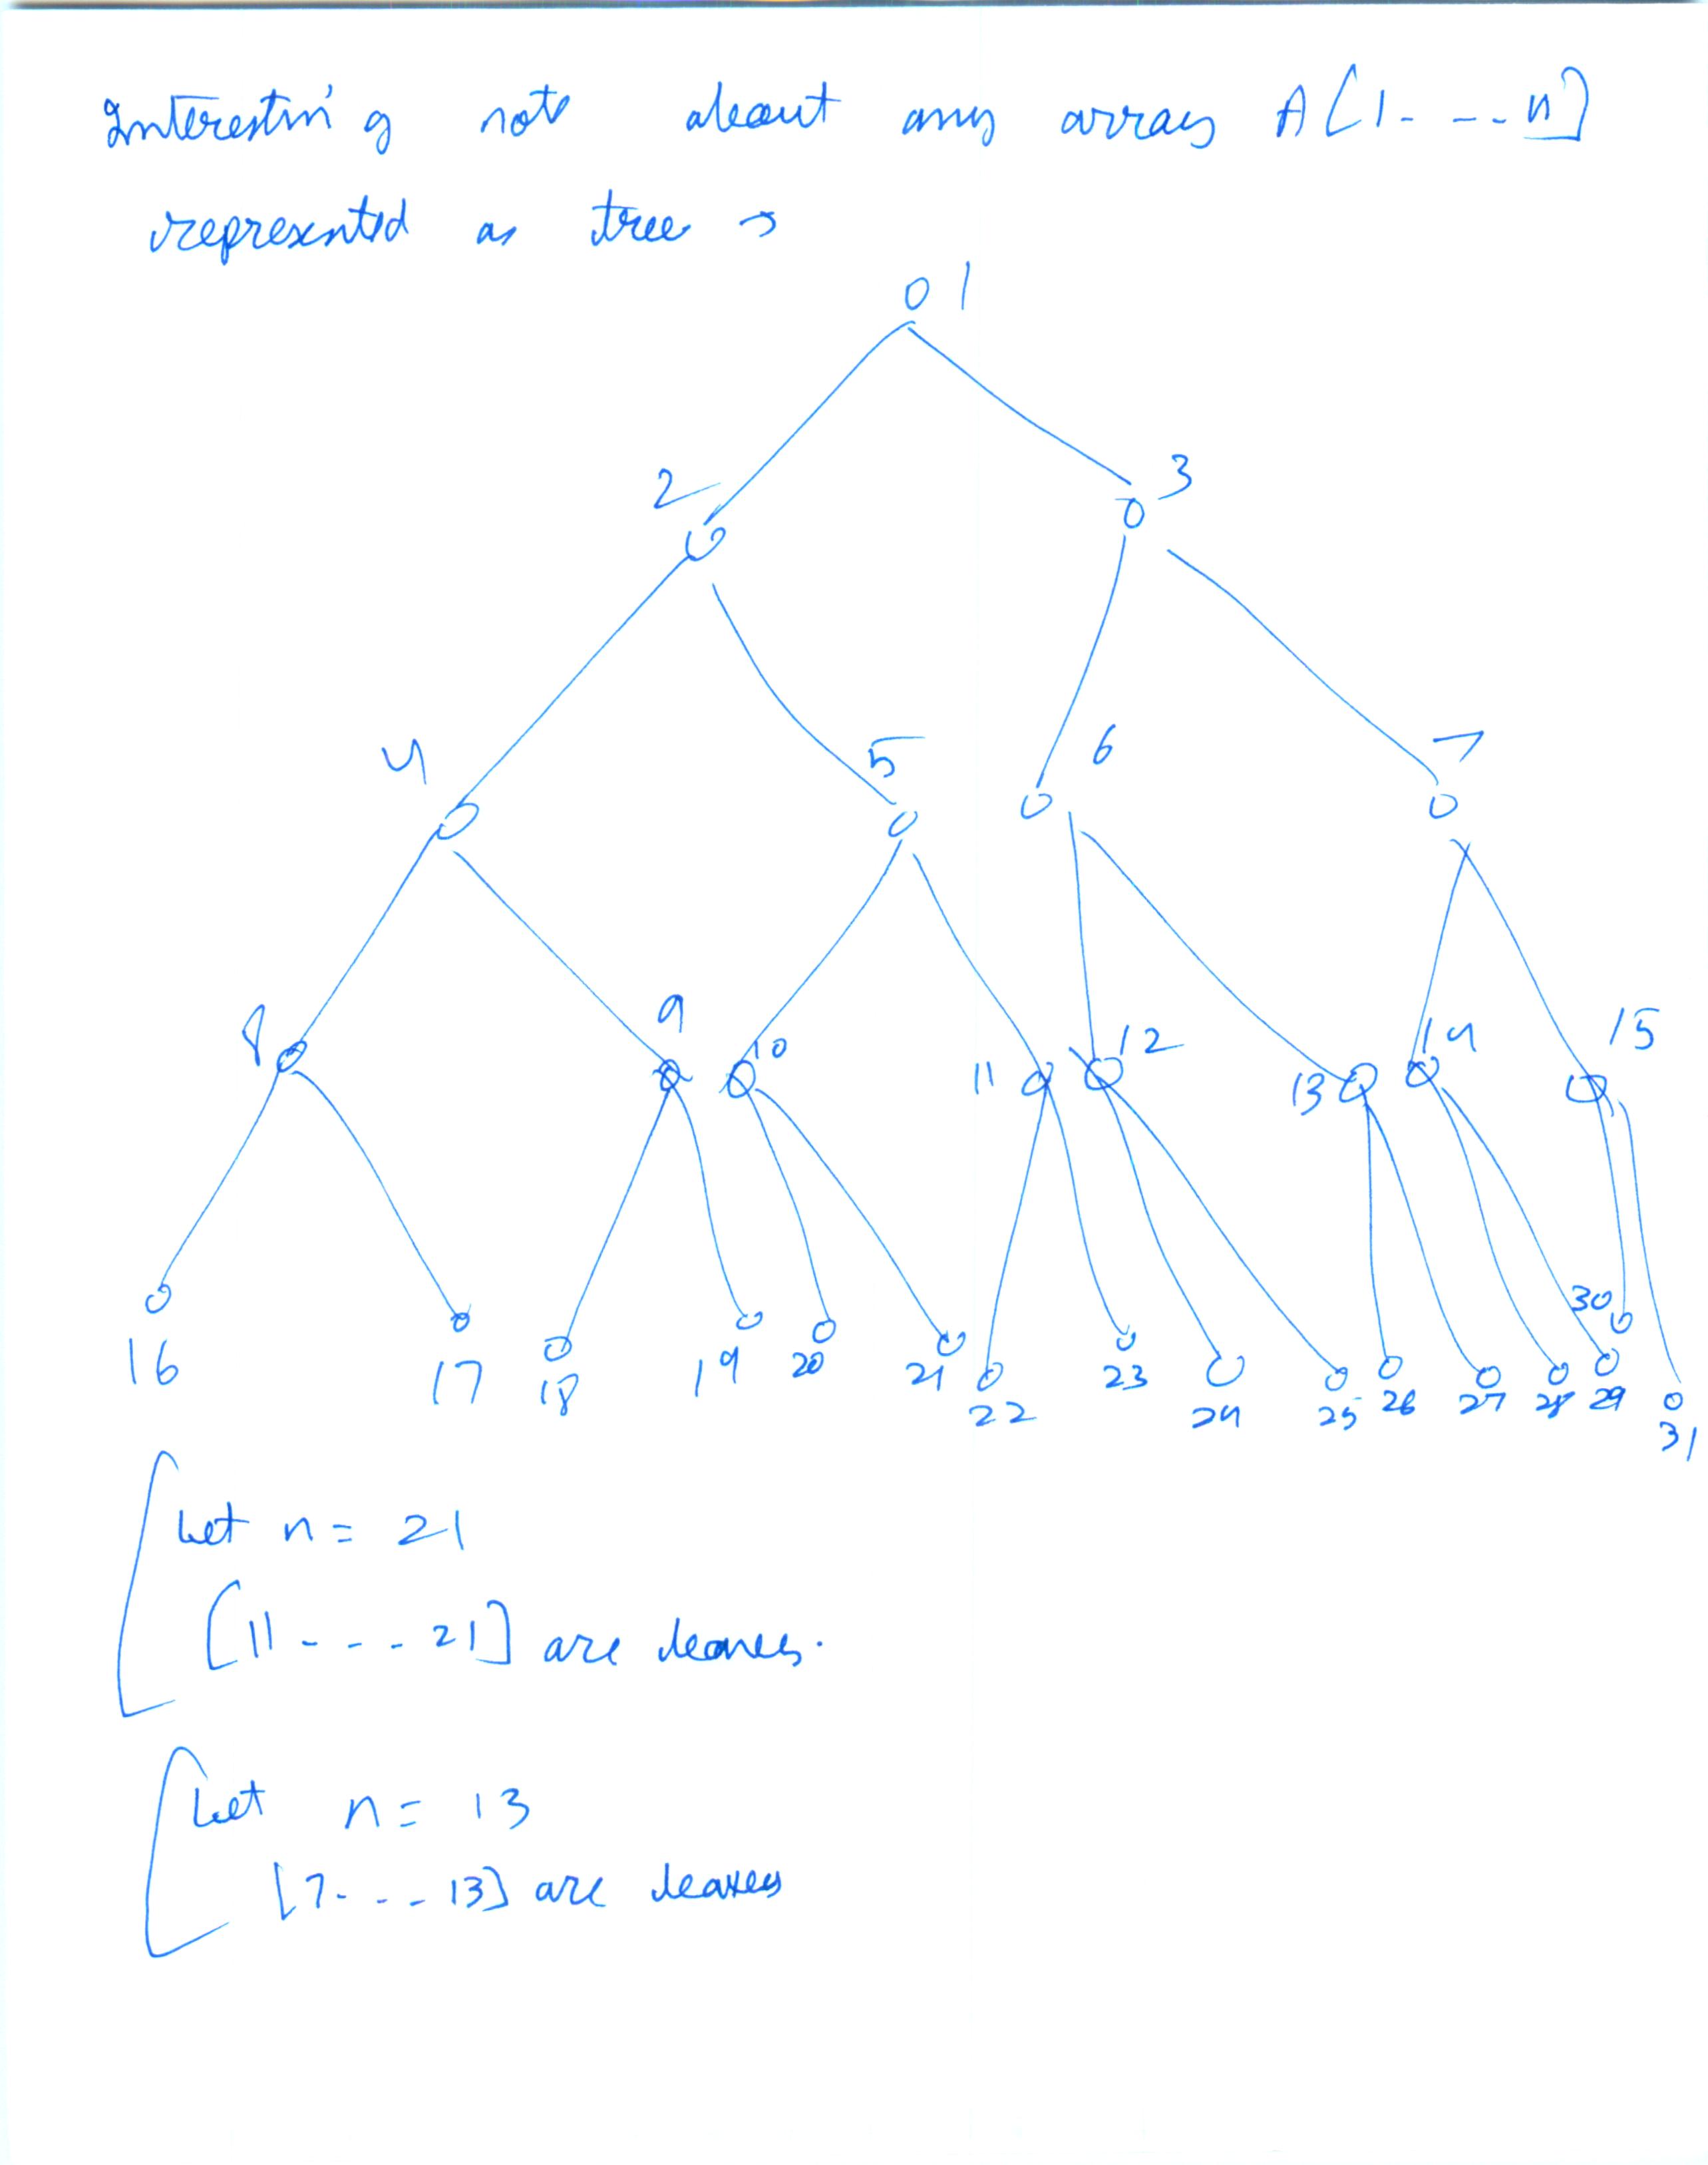 Interesting note about any array A[1- - - - n]
represented as tree →
1
2 3
4 5 6 7
8 9 10 11 12 13 14 15
16 17 18 19 20 21 22 23 24 25 26 27 28 29 30 31
Let n = 21
[11 - - - - 21] are leaves.
Let n = 13
[7 - - - - 13] are leaves